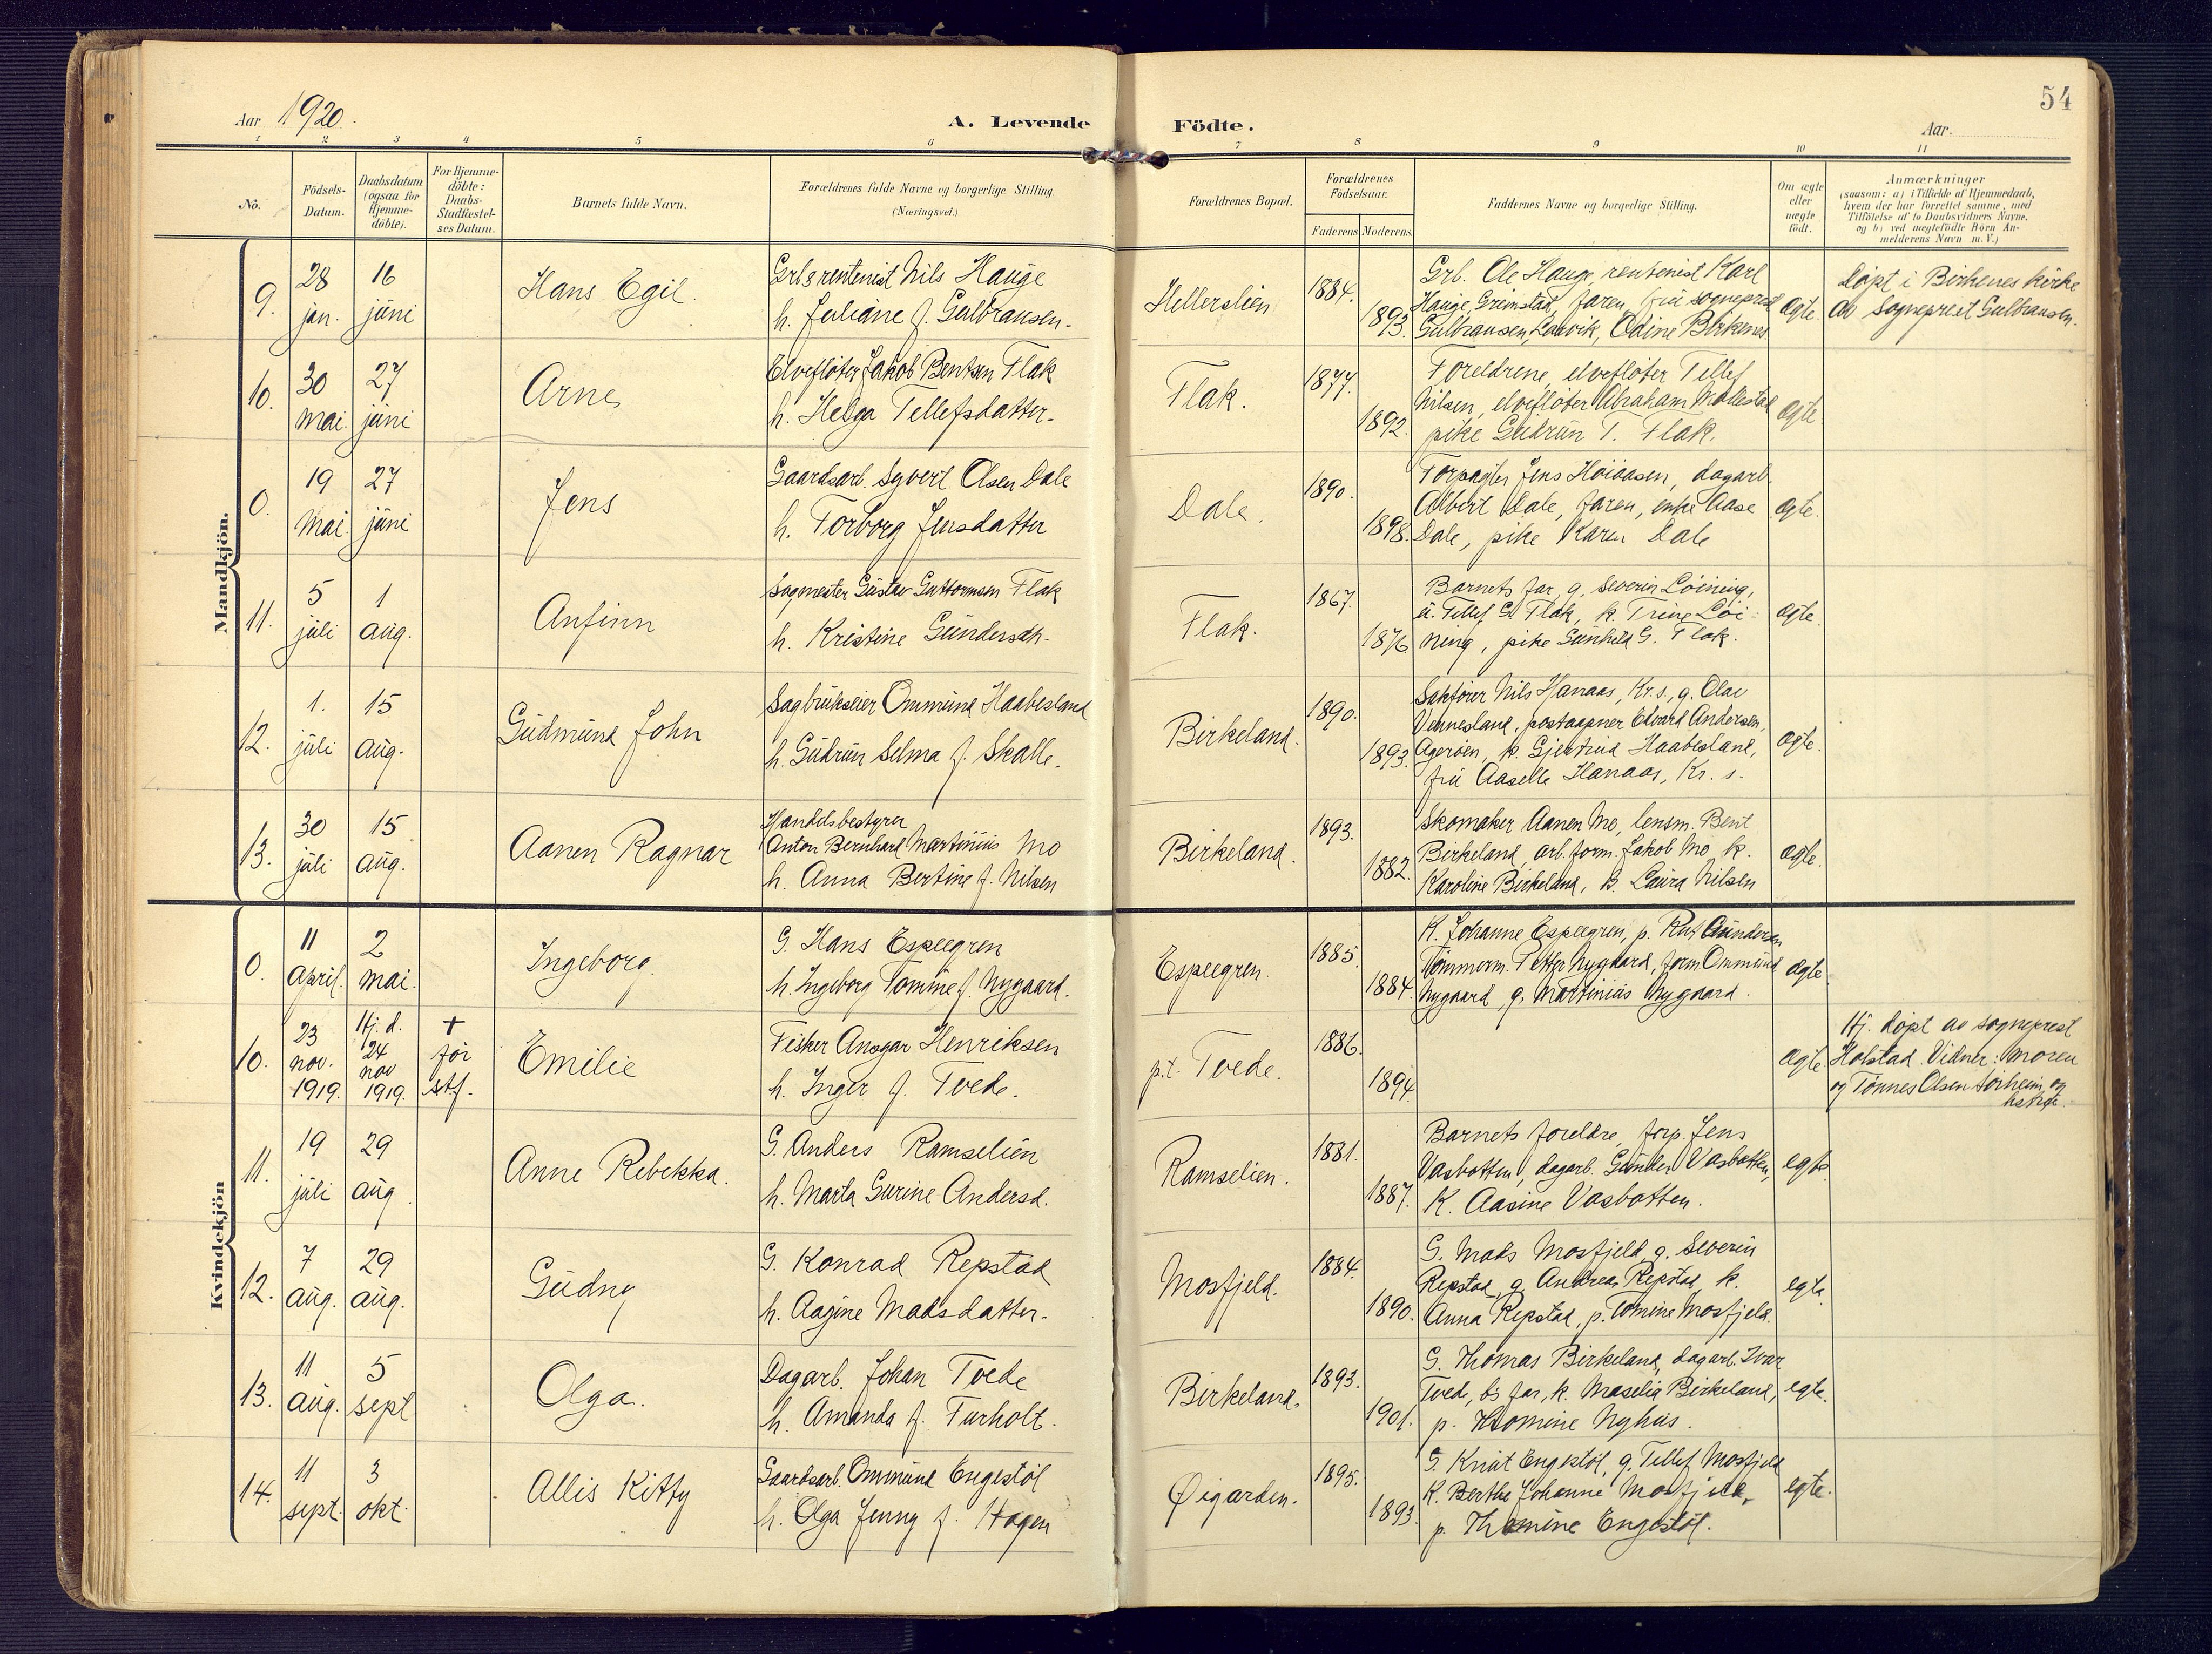 54
Aar 1920.
A. Levende Födte.
Aar.
1 2 3 4 5 6 7 8 9 10 11
No.
Födsels-
Datum.
Daabsdatum
(ogsaa for
Hjemme-
döbte).
For Hjemme-
döbte:
Daabs-
Stadfæstel-
ses Datum.
Barnets fulde Navn.
Forældrenes fulde Navne og borgerlige Stilling.
(Næringsvei.)
Forældrenes Bopæl.
Forældrenes
Födselsaar.
Faderens Moderens
Faddernes Navne og borgerlige Stilling.
Om ægte
eller
uægte
födt.
Anmærkninger
(saasom: a) i Tilfælde af Hjemmedaab,
hvem der har forrettet samme, med
Tilföielse af to Daabsvidners Navne,
og b) ved uægtefödte Börn An-
melderens Navn m. V.)
Mandkjön.
9.
28
jan.
16
juni
Hans Egil.
Grb. & rentenist Nils Hauge
h. Juliane f. Gulbransen.
Hellerslien
1884.
1893.
Grb. Ole Hauge, rentenist Karl
Hauge, Grimstad, faren, fru sogneprest
Gulbransen, Laurvik, Odine Birkenes.
ægte.
Døpt i Birkenes kirke
av sogneprest Gulbransen.
10.
30
mai.
27
juni
Arne
Elvefløter Jakob Bentsen Flak
h. Helga Tellefsdatter.
Flak.
1877.
1892.
Foreldrene, elvefløter Tellef
Nilsen, elvefløter Abraham Mollestad
pike Gudrun T. Flak.
ægte.
0.
19
mai.
27
juni
Jens
Gaardsarb. Syvert Olsen Dale
h. Torborg Jensdatter
Dale.
1890.
1898.
Forpagter Jens Høiaasen, dagarb.
Albert Dale, faren, enke Aase
Dale, pike Karen Dale
ægte.
11.
5
juli
1
aug.
Anfinn
Sagmester Gustav Guttormsen Flak
h. Kristine Gundersdh.
Flak.
1867.
1876
Barnets far, g. Severin Løining,
u. Tellef G. Flak, k. Trine Løi-
ning, pike Gunhild G. Flak.
ægte.
12.
1.
juli
15
aug.
Gudmund John
Sagbrukseier Ommund Haabesland
h. Gudrun Selma f. Skalle.
Birkeland.
1890.
1893.
Sakfører Nils Hanaas, Kr.s., g. Olav
Vennesland, postaapner Edvard Andersen,
Agerøen, k. Gjertrud Haabesland,
fru Aaselle Hanaas, Kr. s.
ægte.
13.
30
juli
15
aug.
Aanen Ragnar
Handelsbestyrer
Anton Bernhard Martinius Mo
h. Anna Bertine f. Nilsen
Birkeland.
1893.
1882.
Skomaker Aanen Mo, lensm. Bent
Birkeland, arb.form. Jakob Mo k.
Karoline Birkeland, k. Laura Nilsen
ægte.
Kvindekjön
0.
11
April.
2
mai.
Ingeborg.
G. Hans Espeegren
h. Ingeborg Tomine f. Nygaard.
Espeegren.
1885.
1884.
K. Johanne Espeegren, p. Rut Gundersen
Tømmerm. Petter Nygaard, form. Ommund
Nygaard g. Martinius Nygaard.
ægte
10.
23
nov.
1919.
Hj. d.
24
nov
1919.
+
før
stf.
Emilie
Fisker Ansgar Henriksen
h. Inger f. Tvede.
p.t. Tvede.
1886.
1894.
ægte.
Hj. døpt av sogneprest
Holstad. Vidner: moren
og Tønnes Olsen Sørheim, og
hustru.
11.
19
juli
29
aug.
Anne Rebekka.
G. Anders Ramselien
h. Marta Gurine Andersd.
Ramselien.
1881.
1887.
Barnets foreldre, forp. Jens
Vasbotten, dagarb. Gunder Vasbotten,
K. Aasine Vasbotten.
egte
12.
7
aug.
29
aug.
Gudny
G. Konrad Repstad
h. Aagine Madsdatter.
Mosfjeld.
1884.
1890.
G. Mads Mosfjeld, g. Severin
Repstad, g. Andreas Repstad, k.
Anna Repstad, p. Tomine Mosfjeld.
egte.
13.
11
aug.
5
sept
Olga.
Dagarb. Johan Tvede
h. Amanda f. Furholt.
Birkeland.
1893.
1901.
G. Thomas Birkeland, dagarb. Ivar
Tvede, bs far, k. Maselia Birkeland,
p. Thomine Nyhus.
egte.
14.
11
sept.
3
okt.
Allis Kitty
Gaardsarb. Ommund Engestøl
h. Olga Jenny f. Hagen
Øigarden.
1895.
1893.
G. Knut Engestøl, g. Tellef Mosfjeld
K. Berthe Johanne Mosfjeld,
p. Thomine Engestøl.
egte.